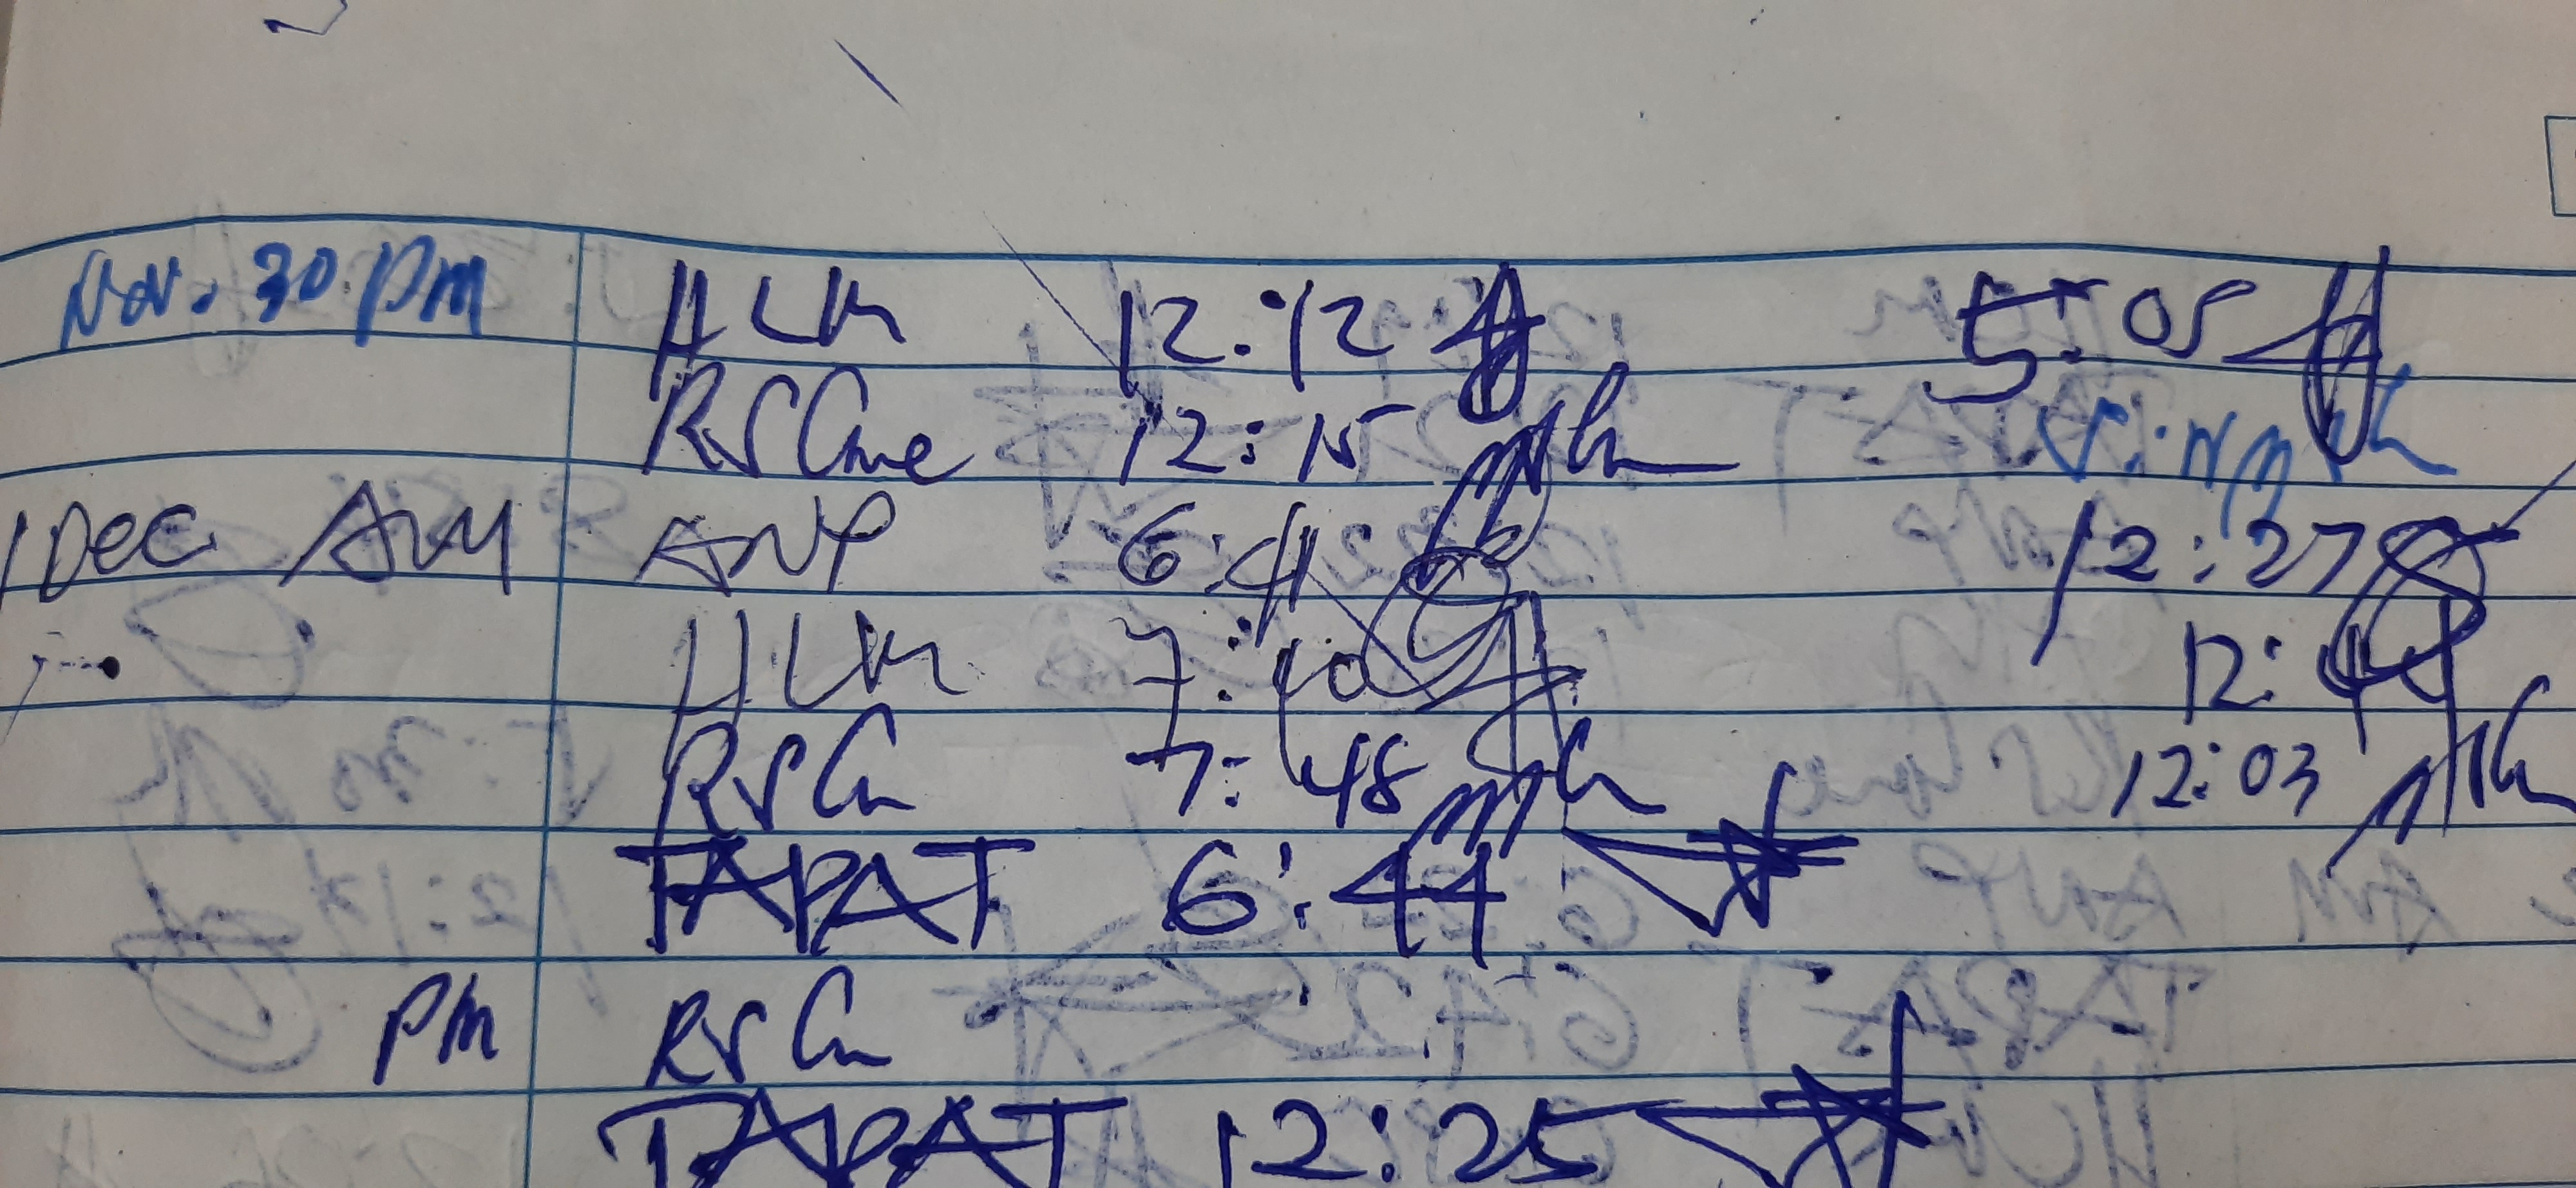 Nov. 30 PM HLM 12:12 5:05
RSCme 12:15
1 DEC AM ANP 6:41 12:27
HLM 7:40 12:
RSCm 7:48 12:03
TAPAT 6:44
PM RSCm
TAPAT 12:25